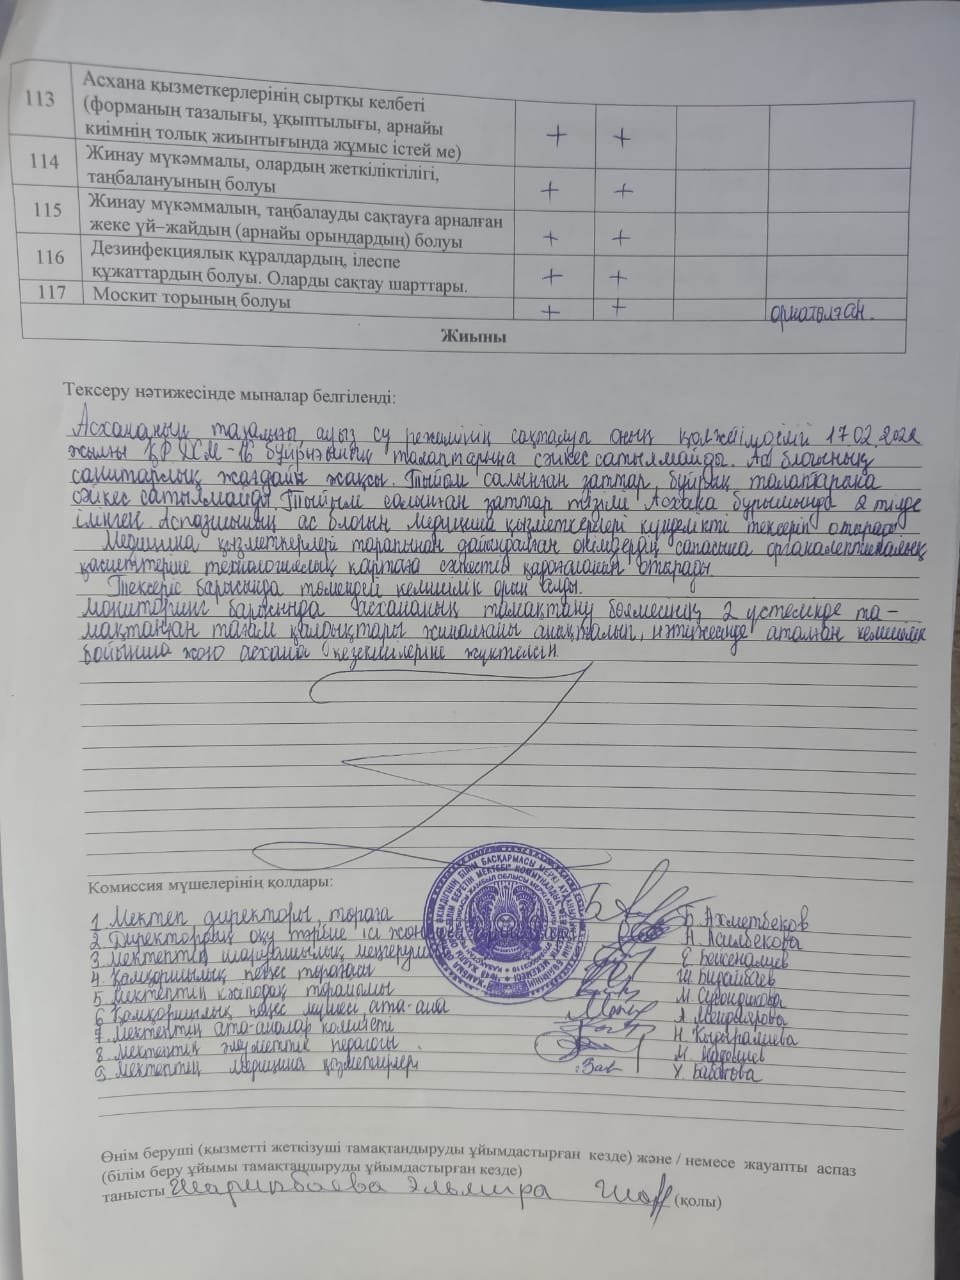 113 Асхана қызметкерлерінің сыртқы келбеті
(форманың тазалығы, ұқыптылығы, арнайы
киімнің толық жиынтығында жұмыс істей ме) + +
114 Жинау мүкәммалы, олардың жеткіліктілігі,
таңбалануының болуы + +
115 Жинау мүкәммалын, таңбалауды сақтауға арналған
жеке үй–жайдың (арнайы орындардың) болуы + +
116 Дезинфекциялық құралдардың, ілеспе
құжаттардың болуы. Оларды сақтау шарттары. + +
117 Москит торының болуы + + орнатылған.
Жиыны
Тексеру нәтижесінде мыналар белгіленді:
Асхананың тазалығы, ауыз су режимінің сақталуы оның қолжетімділігі 17.02.2022
жылғы ҚР ДСМ-16 бұйрығының талаптарына сәйкес сатылмайды. Ас блогының
санитарлық жағдайы жақсы. Тыйым салынған заттар бұйрық талаптарына
сәйкес сатылмайды. Тыйым салынған заттар тізімі Асхана бұрышында 2 тілде
ілінген. Аспазшының ас блогын медицина қызметкерлері күнделікті тексеріп отырады
Медицина қызметкерлері тарапынан дайындалған өнімдердің сапасына органолептикалық
қасиеттеріне технологиялық картаға сәйкестігі қадағаланып отырады.
Тексеріс барысында төмендегі кемшілік орын алды.
Мониторинг барысында асхананың тамақтану бөлмесінің 2 үстелінде та-
мақтанған тағам қалдықтары жиналмай анықталып, нәтижесінде аталған кемшілік
бойынша жою асхана кезекшілеріне жүктелсін.
Комиссия мүшелерінің қолдары:
1. Мектеп директоры, төраға Б. Ахметбеков
2. Директордың оқу тәрбие ісі жөн Н. Асилбекова
3. Мектептің шаруашылық меңгеруш Е.
4. Қамқоршылық кеңес төрағасы Ш.
5. Мектептің кәсіподақ төрағасы М.
6. Қамқоршылық кеңес мүшесі ата-ана А.
7. Мектептің ата-аналар комитеті Н.
8. Мектептің әлеуметтік педагогы М.
9. Мектептің медицина қызметкерлері У. Бабаева
Өнім беруші (қызметті жеткізуші тамақтандыруды ұйымдастырған кезде) және / немесе жауапты аспаз
(білім беру ұйымы тамақтандыруды ұйымдастырған кезде)
танысты Шарипбаева Эльмира (қолы)